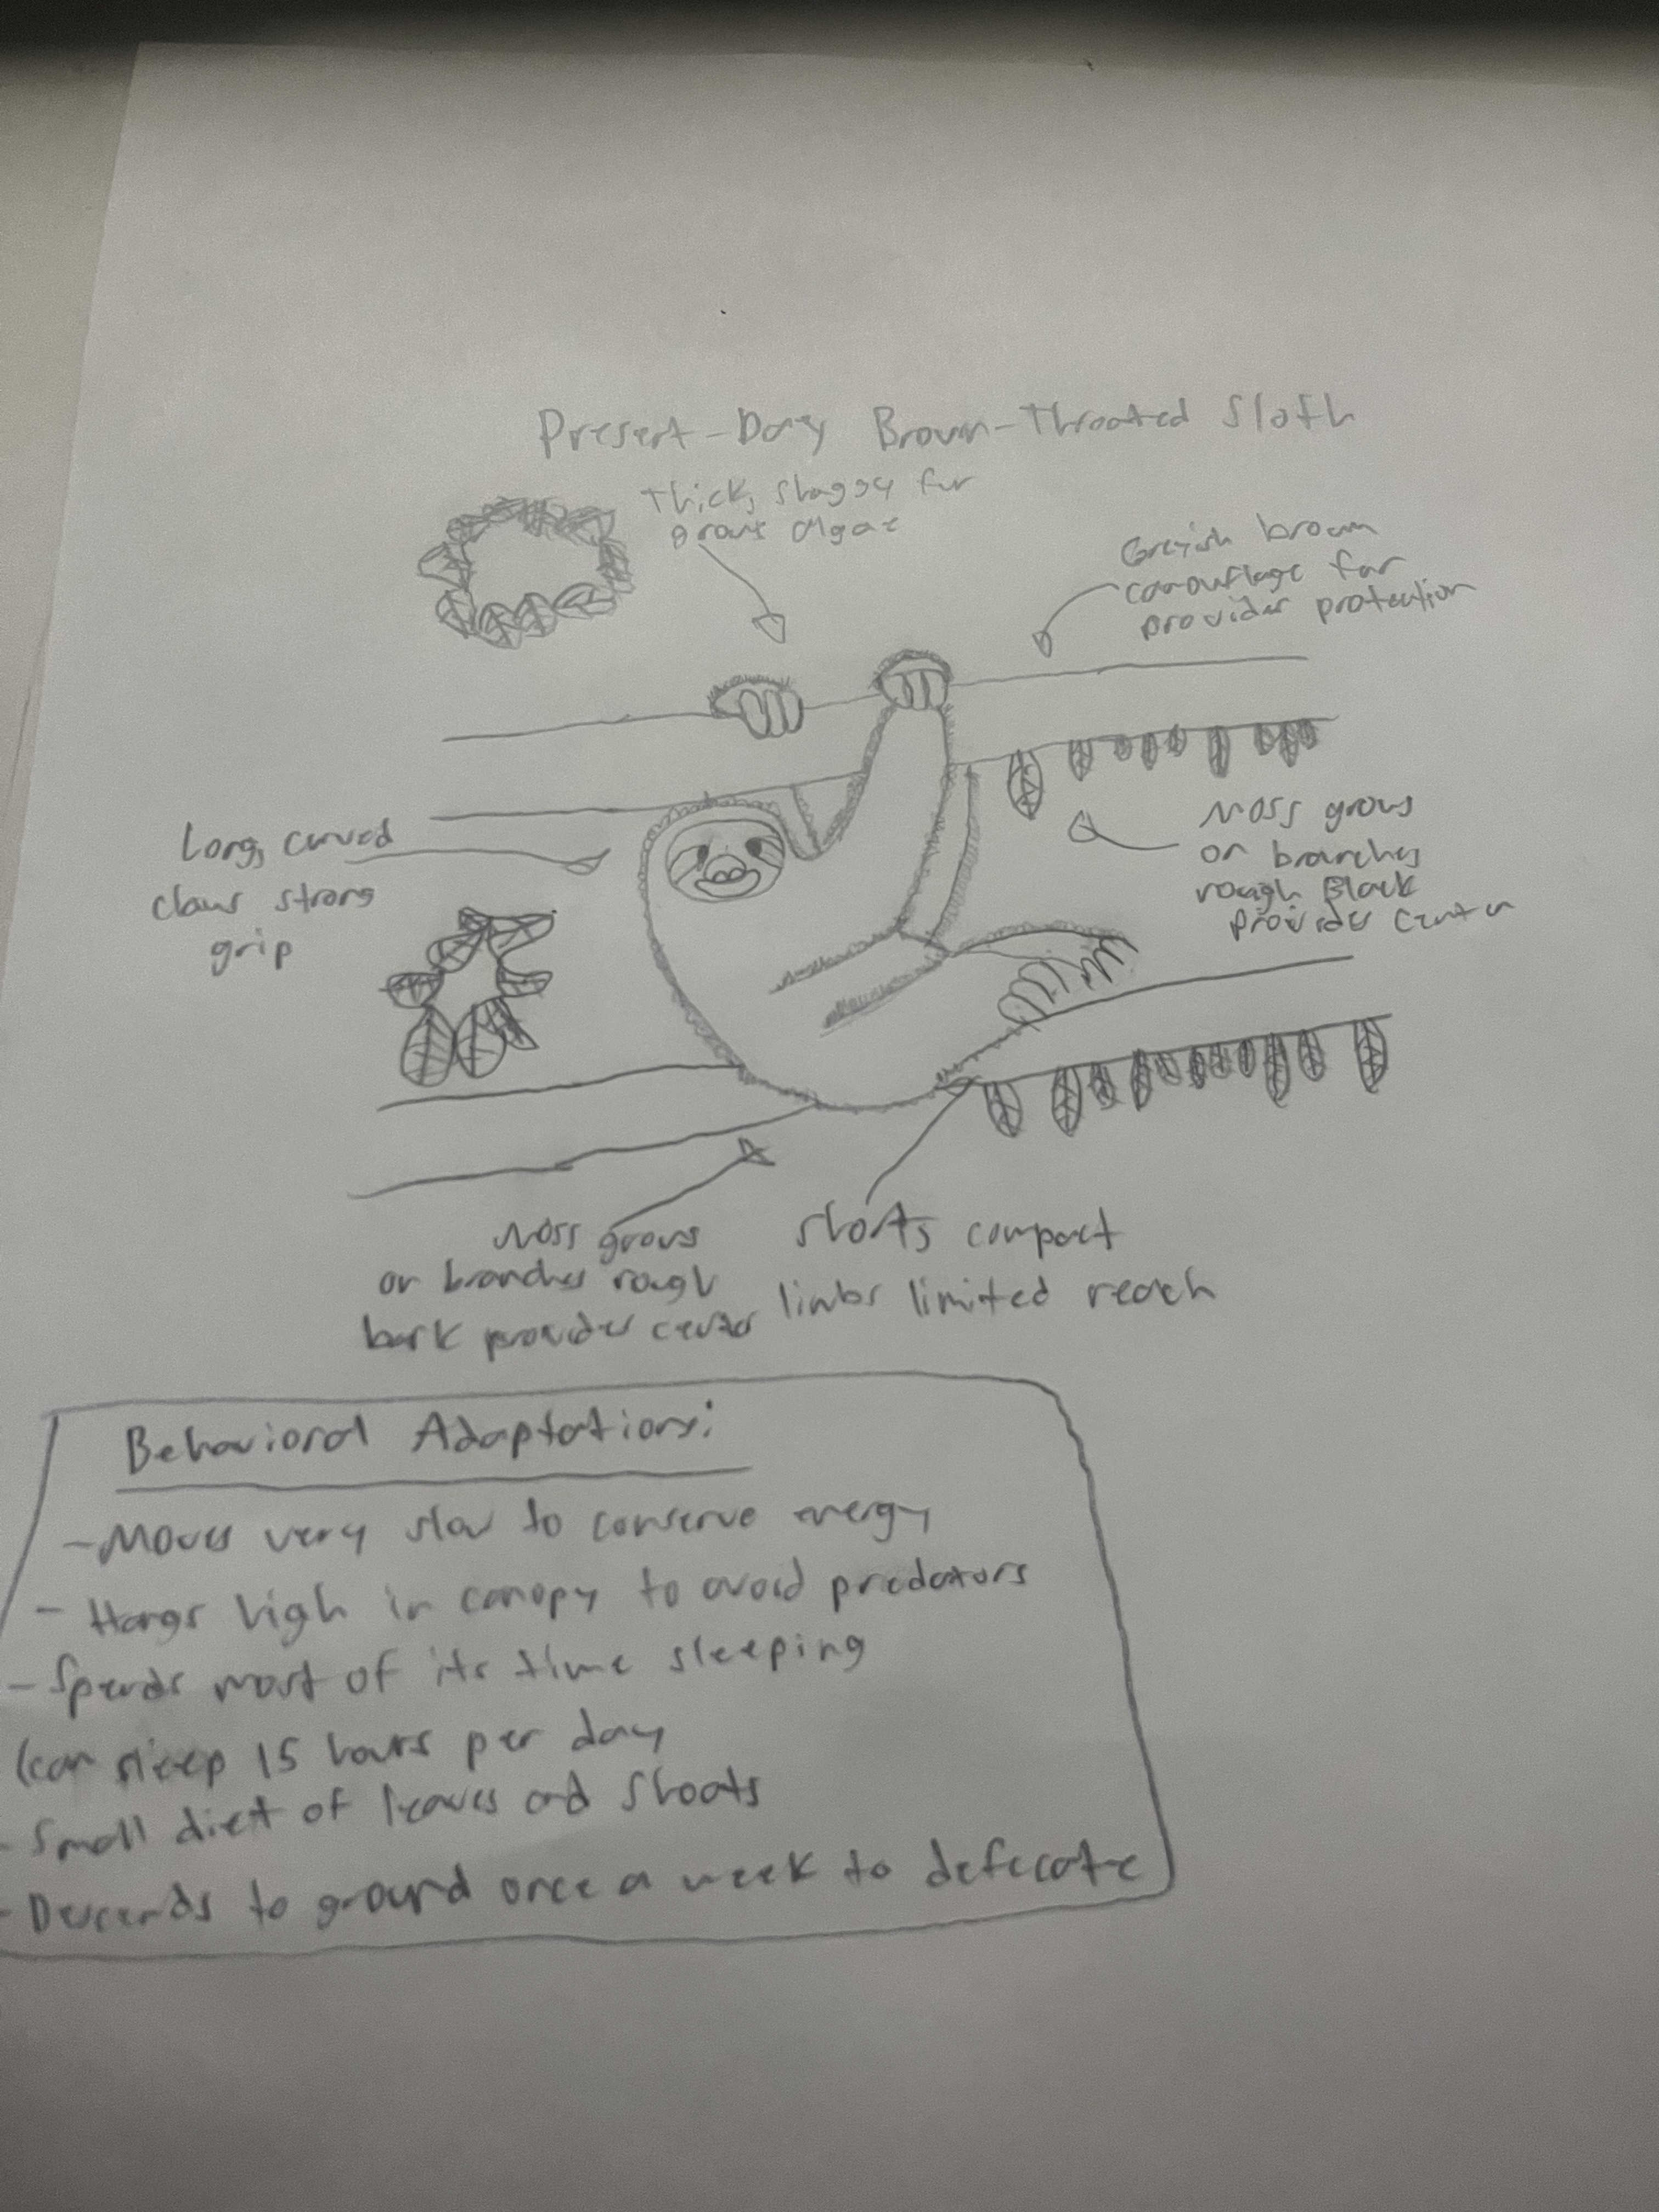 Present-Day Brown-Throated Sloth
Thick, shaggy fur
grows algae
Greyish brown
camouflage far
provides protection
Long, curved
claws strong
grip
Moss grows
on branches
rough Black
provides
Moss grows
on branches rough
bark provides
shorts compact
limbs limited reach
Behavioral Adaptations:
- Moves very slow to conserve energy
- Hangs high in canopy to avoid predators
- Spends most of its time sleeping
(can sleep 15 hours per day
- Small diet of leaves and shoots
- Descends to ground once a week to defecate